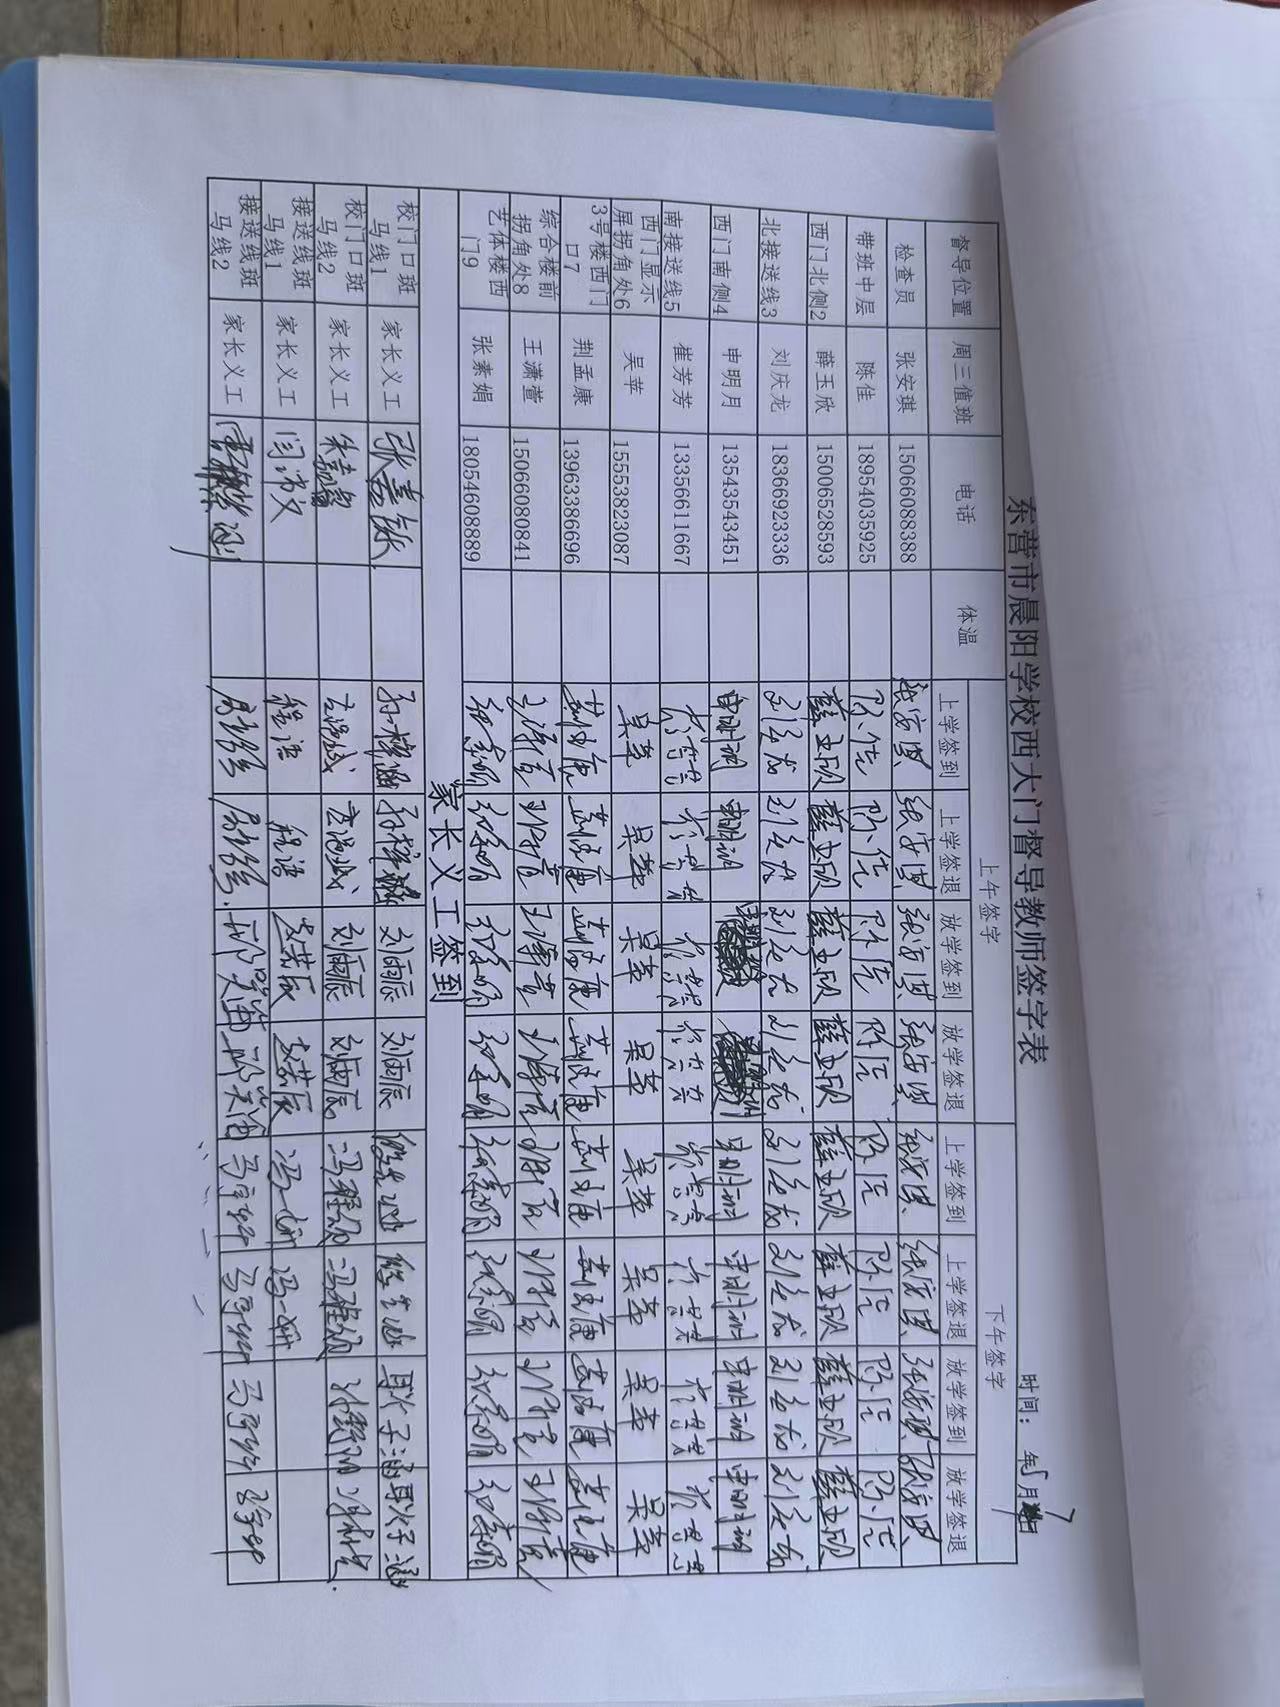 东营市晨阳学校西大门督导教师签字表
时间: 年 月 7日
督导位置 周三值班 电话 体温 上午签字 下午签字
上学签到 上学签退 放学签到 放学签退 上学签到 上学签退 放学签到 放学签退
检查员 张安琪 15066088388 张安琪 张安琪 张安琪 张安琪 张安琪 张安琪 张安琪 张安琪
带班中层 陈佳 18954035925 陈佳 陈佳 陈佳 陈佳 陈佳 陈佳 陈佳 陈佳
西门北侧2 薛玉欣 15006528593 薛玉欣 薛玉欣 薛玉欣 薛玉欣 薛玉欣 薛玉欣 薛玉欣 薛玉欣
北接送线3 刘庆龙 18366923336 刘庆龙 刘庆龙 刘庆龙 刘庆龙 刘庆龙 刘庆龙 刘庆龙 刘庆龙
西门南侧4 申明月 13543543451 申明月 申明月 申明月 申明月 申明月 申明月 申明月 申明月
南接送线5 崔芳芳 13356611667 崔芳芳 崔芳芳 崔芳芳 崔芳芳 崔芳芳 崔芳芳 崔芳芳 崔芳芳
西门显示屏拐角处6 吴苹 15553823087 吴苹 吴苹 吴苹 吴苹 吴苹 吴苹 吴苹 吴苹
3号楼西门口7 荆孟康 13963386696 荆孟康 荆孟康 荆孟康 荆孟康 荆孟康 荆孟康 荆孟康 荆孟康
综合楼前拐角处8 王潇萱 15066080841 王潇萱 王潇萱 王潇萱 王潇萱 王潇萱 王潇萱 王潇萱 王潇萱
艺体楼西门9 张素娟 18054608889 张素娟 张素娟 张素娟 张素娟 张素娟 张素娟 张素娟 张素娟
家长义工签到
校门口斑马线1 家长义工 刘雨辰 刘雨辰
校门口斑马线2 家长义工 刘雨辰 刘雨辰 冯程颀 冯程颀
接送线斑马线1 家长义工 闫沛文 程语 程语 孟若辰 孟若辰 冯一妍 冯一妍
接送线斑马线2 家长义工